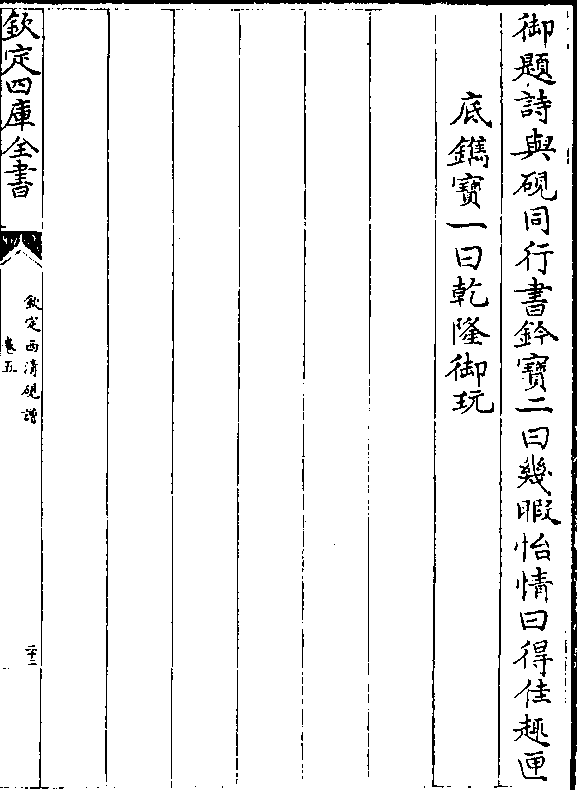 御題詩與硯同行書鈐寶二曰幾暇怡情曰得佳趣匣
底鐫寶一曰乾隆御玩
欽定四庫全書
欽定西清硯譜
卷五
二十二